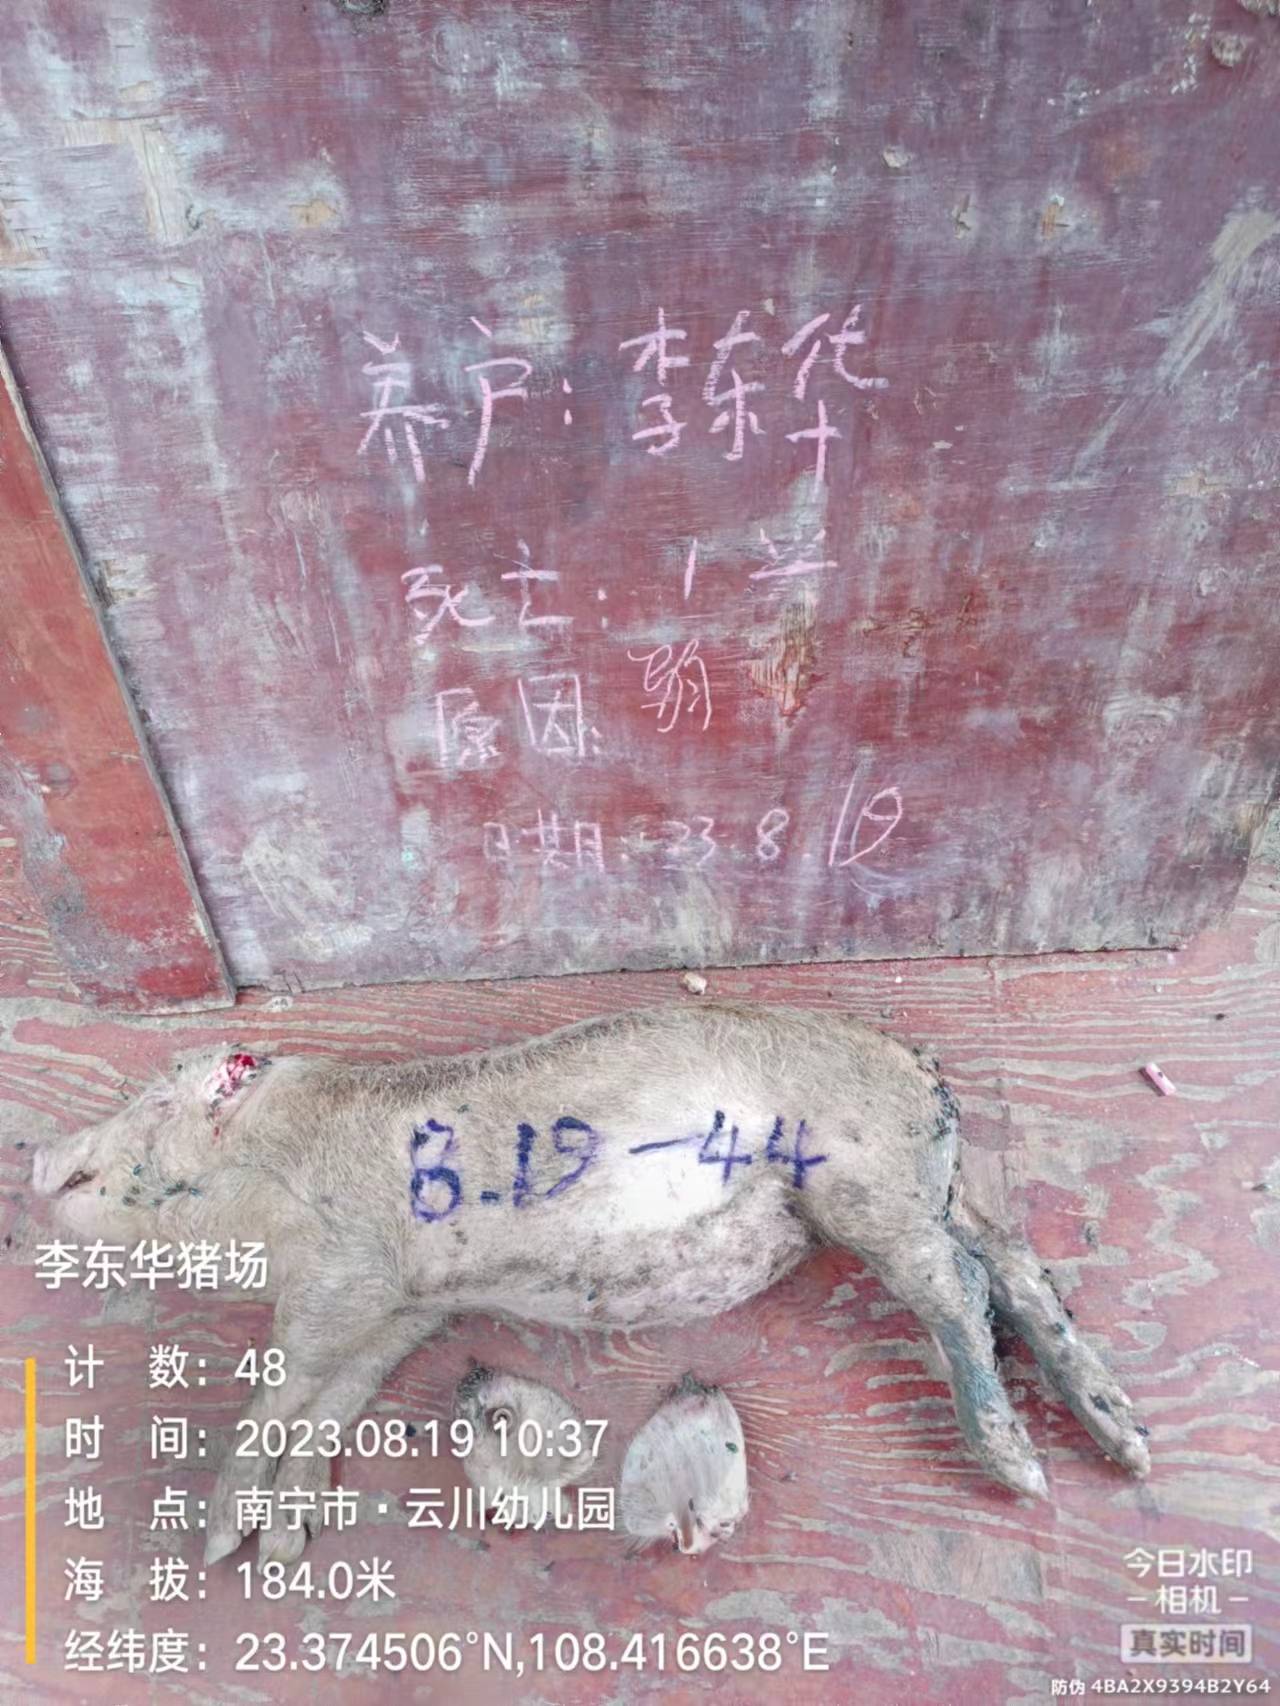 养户:李东华
死亡:1头
原因:弱
日期:23.8.19
8.19-44
李东华猪场
计 数:48
时 间:2023.08.19 10:37
地 点:南宁市·云川幼儿园
海 拔:184.0米
经纬度:23.374506°N,108.416638°E
今日水印
-相机-
真实时间
防伪 4BA2X9394B2Y64